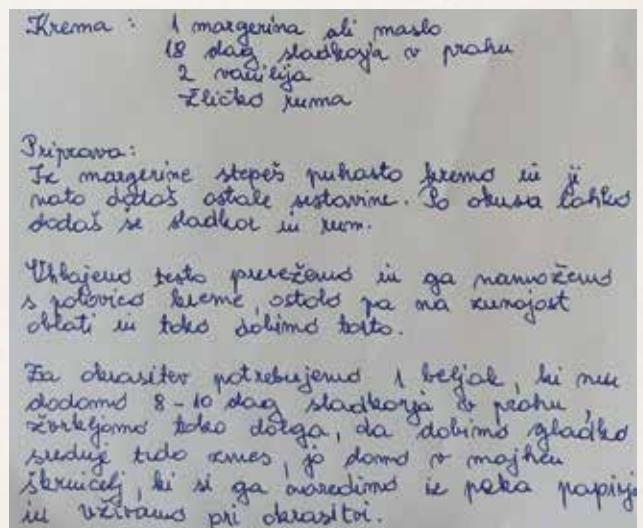 Krema : 1 margerina ali maslo
18 dag sladkorja v prahu
2 vanilija
žličko ruma
Priprava:
Iz margerine stepeš puhasto kremo in ji
nato dodaš ostale sestavine. Po okusu lahko
dodaš še sladkor in rum.
Uhlajeno testo prerežemo in ga namažemo
s polovico kreme, ostalo pa na zunajost
oblati in tako dobimo torto.
Za okrasitev potrebujemo 1 beljak, ki mu
dodamo 8-10 dag sladkorja v prahu,
žvrkljamo tako dolga, da dobimo gladko
srednje trdo zmes, jo damo v majhen
škrnicelj, ki si ga naredimo iz peka papirja
in uživamo pri okrasitvi.